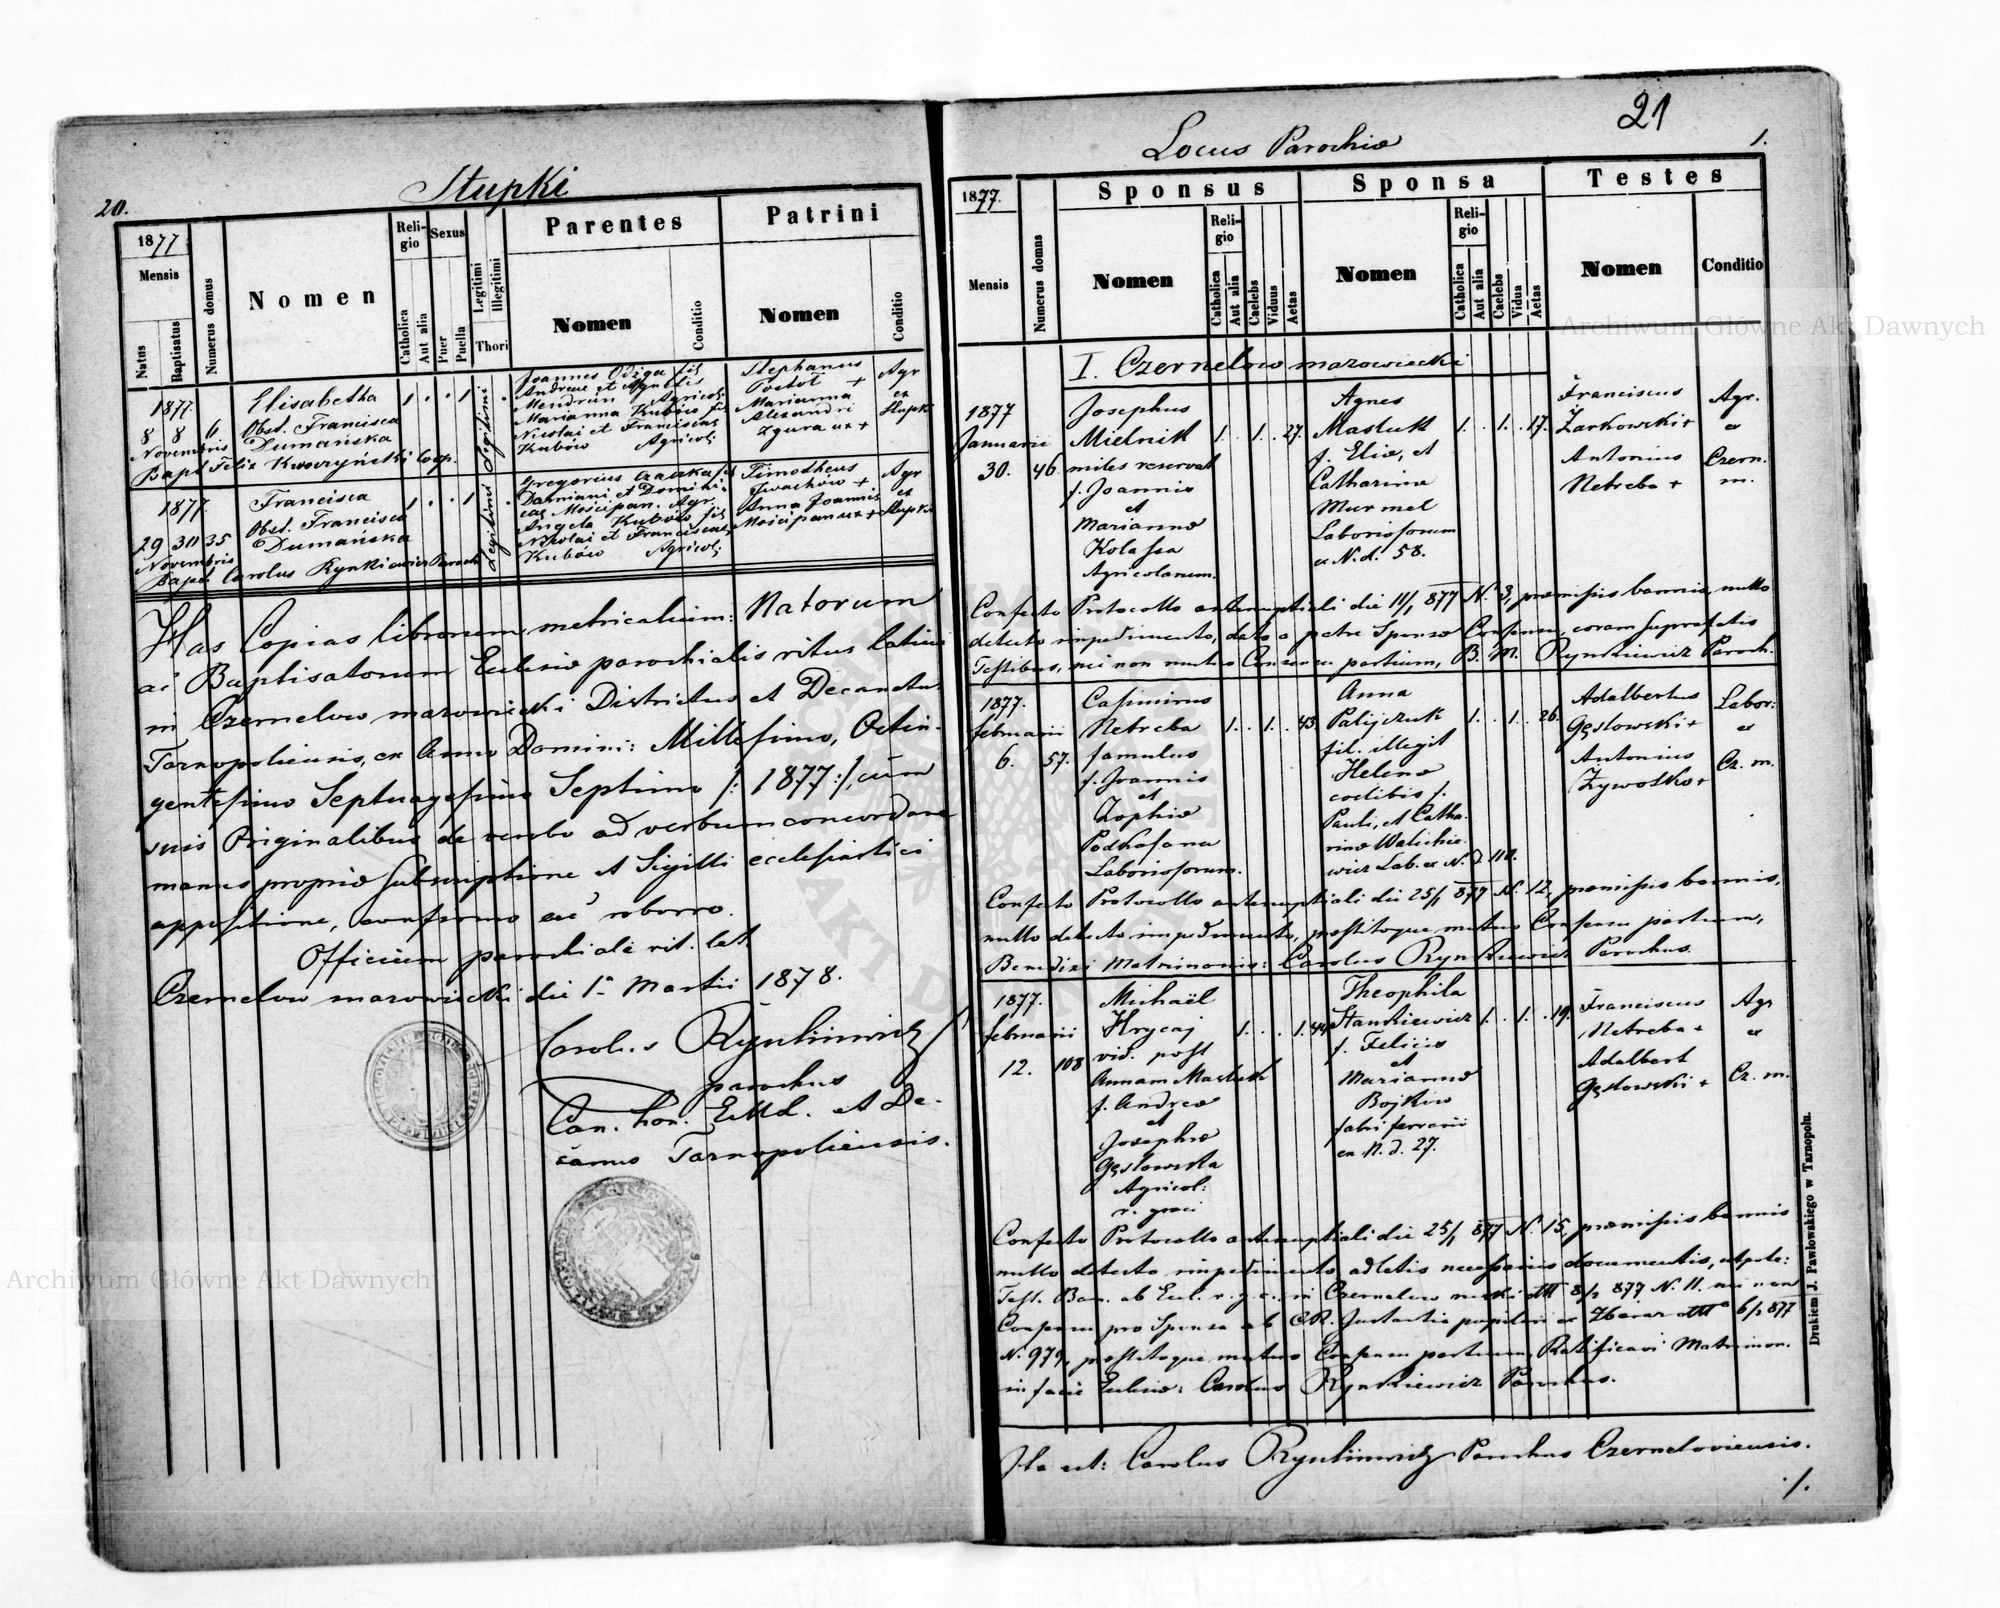 20.
Stupki
1877
Mensis
Natus
Baptisatus
Numerus domus
Nomen
Religio
Catholica
Aut alia
Sexus
Puer
Puella
Legitimi
Illegitimi
Thori
Parentes
Nomen
Conditio
Patrini
Nomen
Conditio
1877.
8 8 6
Novembris
Elisabetha
Obst. Francisca
Dumańska
Bapt Felix Kwoczyński Coop.
1 . . 1
Legitimi
Joannes Odyga fil
Andreae et Agnetis
Mendrun Agricol:
Marianna Kubów fil
Nicolai et Franciscae
Kubów Agricol:
Stephanus
Postół +
Marianna
Alexandri
Zgura ux +
Agr
ex
Stupki
1877.
29 30 35
Novembris
Francisca
Obst. Francisca
Dumańska
Bapt. Carolus Rynkiewicz Paroch
1 . . 1
Legitimi
Gregorius Czaczka fil
Damiani et Domini-
cae Mościpan. Agr.
Angela Kubów fil
Nikolai et Franciscae
Kubów Agricol:
Timotheus
Iwachów +
Anna Joannis
Mościpan ux +
Agr
ex
Stupki
Has Copias librorum metricalium: Natorum
ac Baptisatorum Ecclesiæ parochialis ritus latini
in Czernelow mazowiecki Districtus et Decanatu:
Tarnopoliensis, ex Anno Domini: Millesimo, Octin-
gentesimo Septuagesimo Septimo /: 1877:/, cum
suis Originalibus de verbo ad verbum concordare
manus propriæ subscriptione et Sigilli ecclesiastici
appositione, confirmo ac roborro.
Officium parochiale rit. lat.
Czernelow mazowiecki die 1ª Martii 1878.
Carolus Rynkiewicz
parochus
Can. hon. et De-
canus Tarnopoliensis.
21
Locus Parochiæ
1.
1877.
Mensis
Numerus domus
Sponsus
Nomen
Religio
Catholica
Aut alia
Caelebs
Viduus
Aetas
Sponsa
Nomen
Religio
Catholica
Aut alia
Caelebs
Vidua
Aetas
Testes
Nomen
Conditio
I. Czernelow mazowiecki
1877
Januarii
30. 46
Josephus
Mielnik 1. . 1. . 27.
miles reservat
f. Joannis
et
Mariannæ
Kolassa
Agricolarum.
Agnes
Masluk 1. . 1. . 17.
f. Eliæ, et
Catharinæ
Murmel
Laboriosorum
ex N. d. 58.
Franciscus
Żarkowski +
Antonius
Netreba +
Agr.
ex
Czern.
m.
Confecto Protocollo antenuptiali die 11/1 877 N. 3, præmissis bannis, nullo
detecto impedimento, dato a patre Sponsæ Consensu, coram suprafatis
Testibus, nec non mutuo Consensu partium, B. M. Rynkiewicz Paroch.
1877.
februarii
6. 57.
Casimirus
Netreba 1. . 1. . 43
famulus
f. Joannis
et
Zophiæ
Podhasana
Laboriosorum.
Anna
Palijczuk 1. . 1. . 26.
fil. illegit
Helenæ
coelibis f.
Pauli, et Catha-
rinæ Walichie-
wicz Lab. ex N. D. 110.
Adalbertus
Gęslowski +
Antonius
Żywotko +
Labor:
ex
Cz. m.
Confecto Protocollo antenuptiali die 25/1 877 N. 12, præmissis bannis,
nullo detecto impedimento, præstitoque mutuo Consensu partium,
Benedixi Matrimonio: Carolus Rynkiewicz Parochus.
1877.
februarii
12. 108
Michaël
Hrycaj 1. . . 1. 44
vid. post
Annam Masluk
f. Andreæ
et
Josephæ
Gęslowska
Agricol:
r. græci
Theophila
Stankiewicz 1. . 1. . 19.
f. Felicis
et
Mariannæ
Bojkiw
fabri ferrarii
ex N. d. 27.
Franciscus
Netreba +
Adalbert
Gęslowski +
Agr
ex
Cz. m.
Confecto Protocollo antenuptiali die 25/1 877 N. 15, præmissis bannis
nullo detecto impedimento, adlatis necessariis documentis, utpote:
Test. Ban. ab Eccl. r. g. c. in Czernelow ruski 8/2 877 N. 11. nec non
Consensu pro Sponsa ab C.R. Justantia pupilari ex Zbaraz 6/2 877
N. 979, præstitoque mutuo Consensu partium, Ratificavi Matrimon.
in facie Ecclesiæ: Carolus Rynkiewicz Parochus.
Ita est: Carolus Rynkiewicz Parochus Czerneloviensis.
./.
Drukiem J. Pawłowskiego w Tarnopolu.
Archiwum Główne Akt Dawnych
Archiwum Główne Akt Dawnych